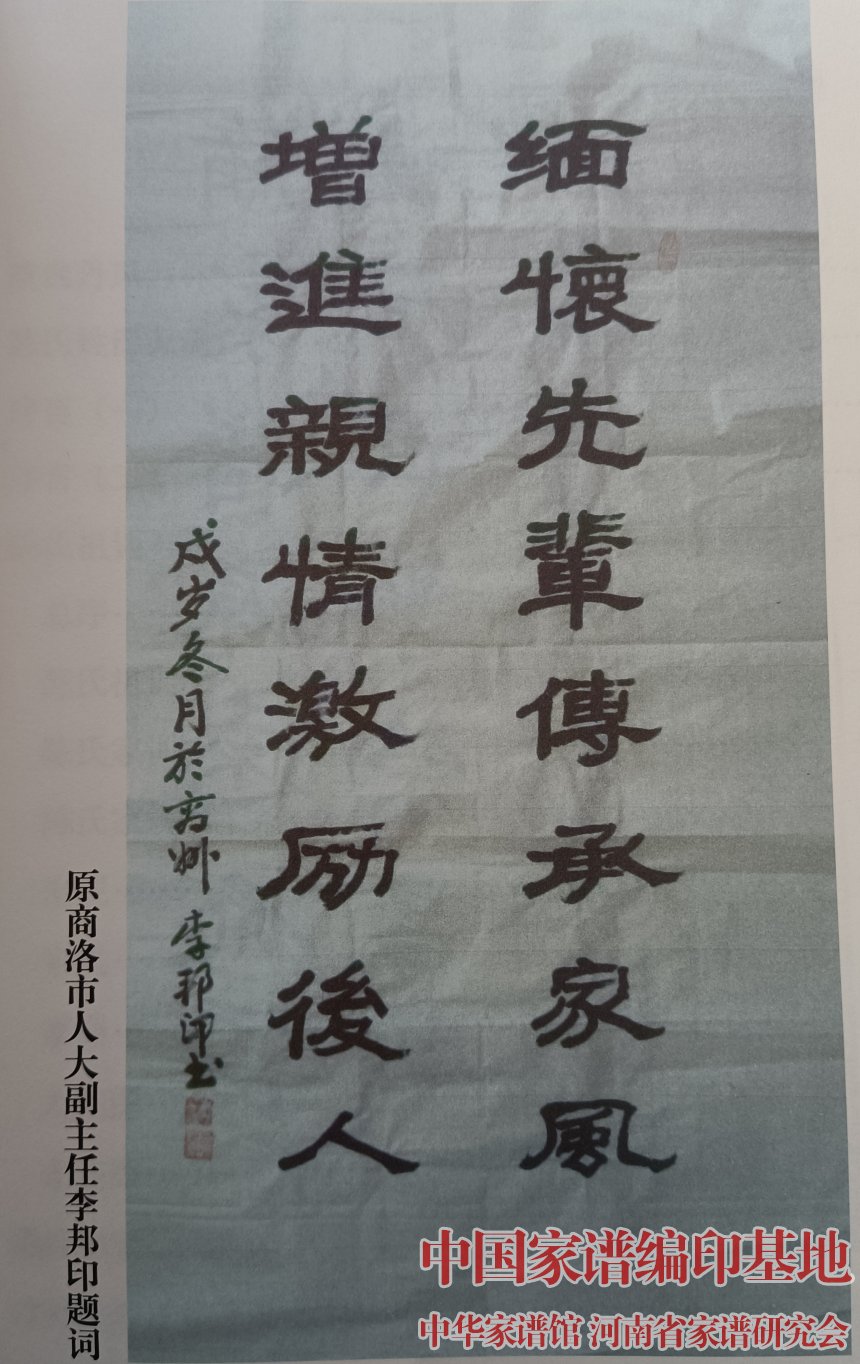 缅懷先輩傳承家風
增進親情激励後人
戌岁冬月於商州 李邦印书
原商洛市人大副主任李邦印题词
中国家谱编印基地
中华家谱馆 河南省家谱研究会